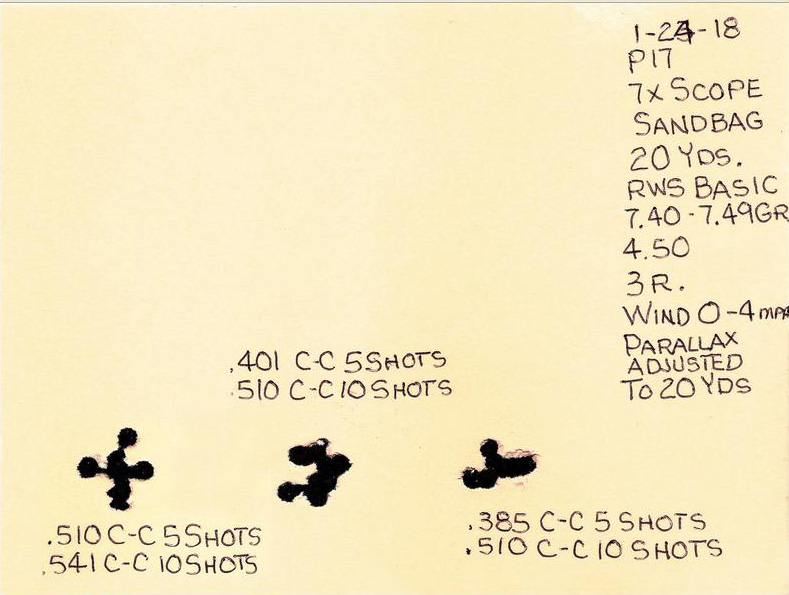 1-24-18
P17
7X SCOPE
SANDBAG
20 YDS.
RWS BASIC
7.40-7.49GR
4.50
3R.
WIND 0-4 MPH
PARALLAX
ADJUSTED
TO 20 YDS
.401 C-C 5 SHOTS
.510 C-C 10 SHOTS
.510 C-C 5 SHOTS
.541 C-C 10 SHOTS
.385 C-C 5 SHOTS
.510 C-C 10 SHOTS